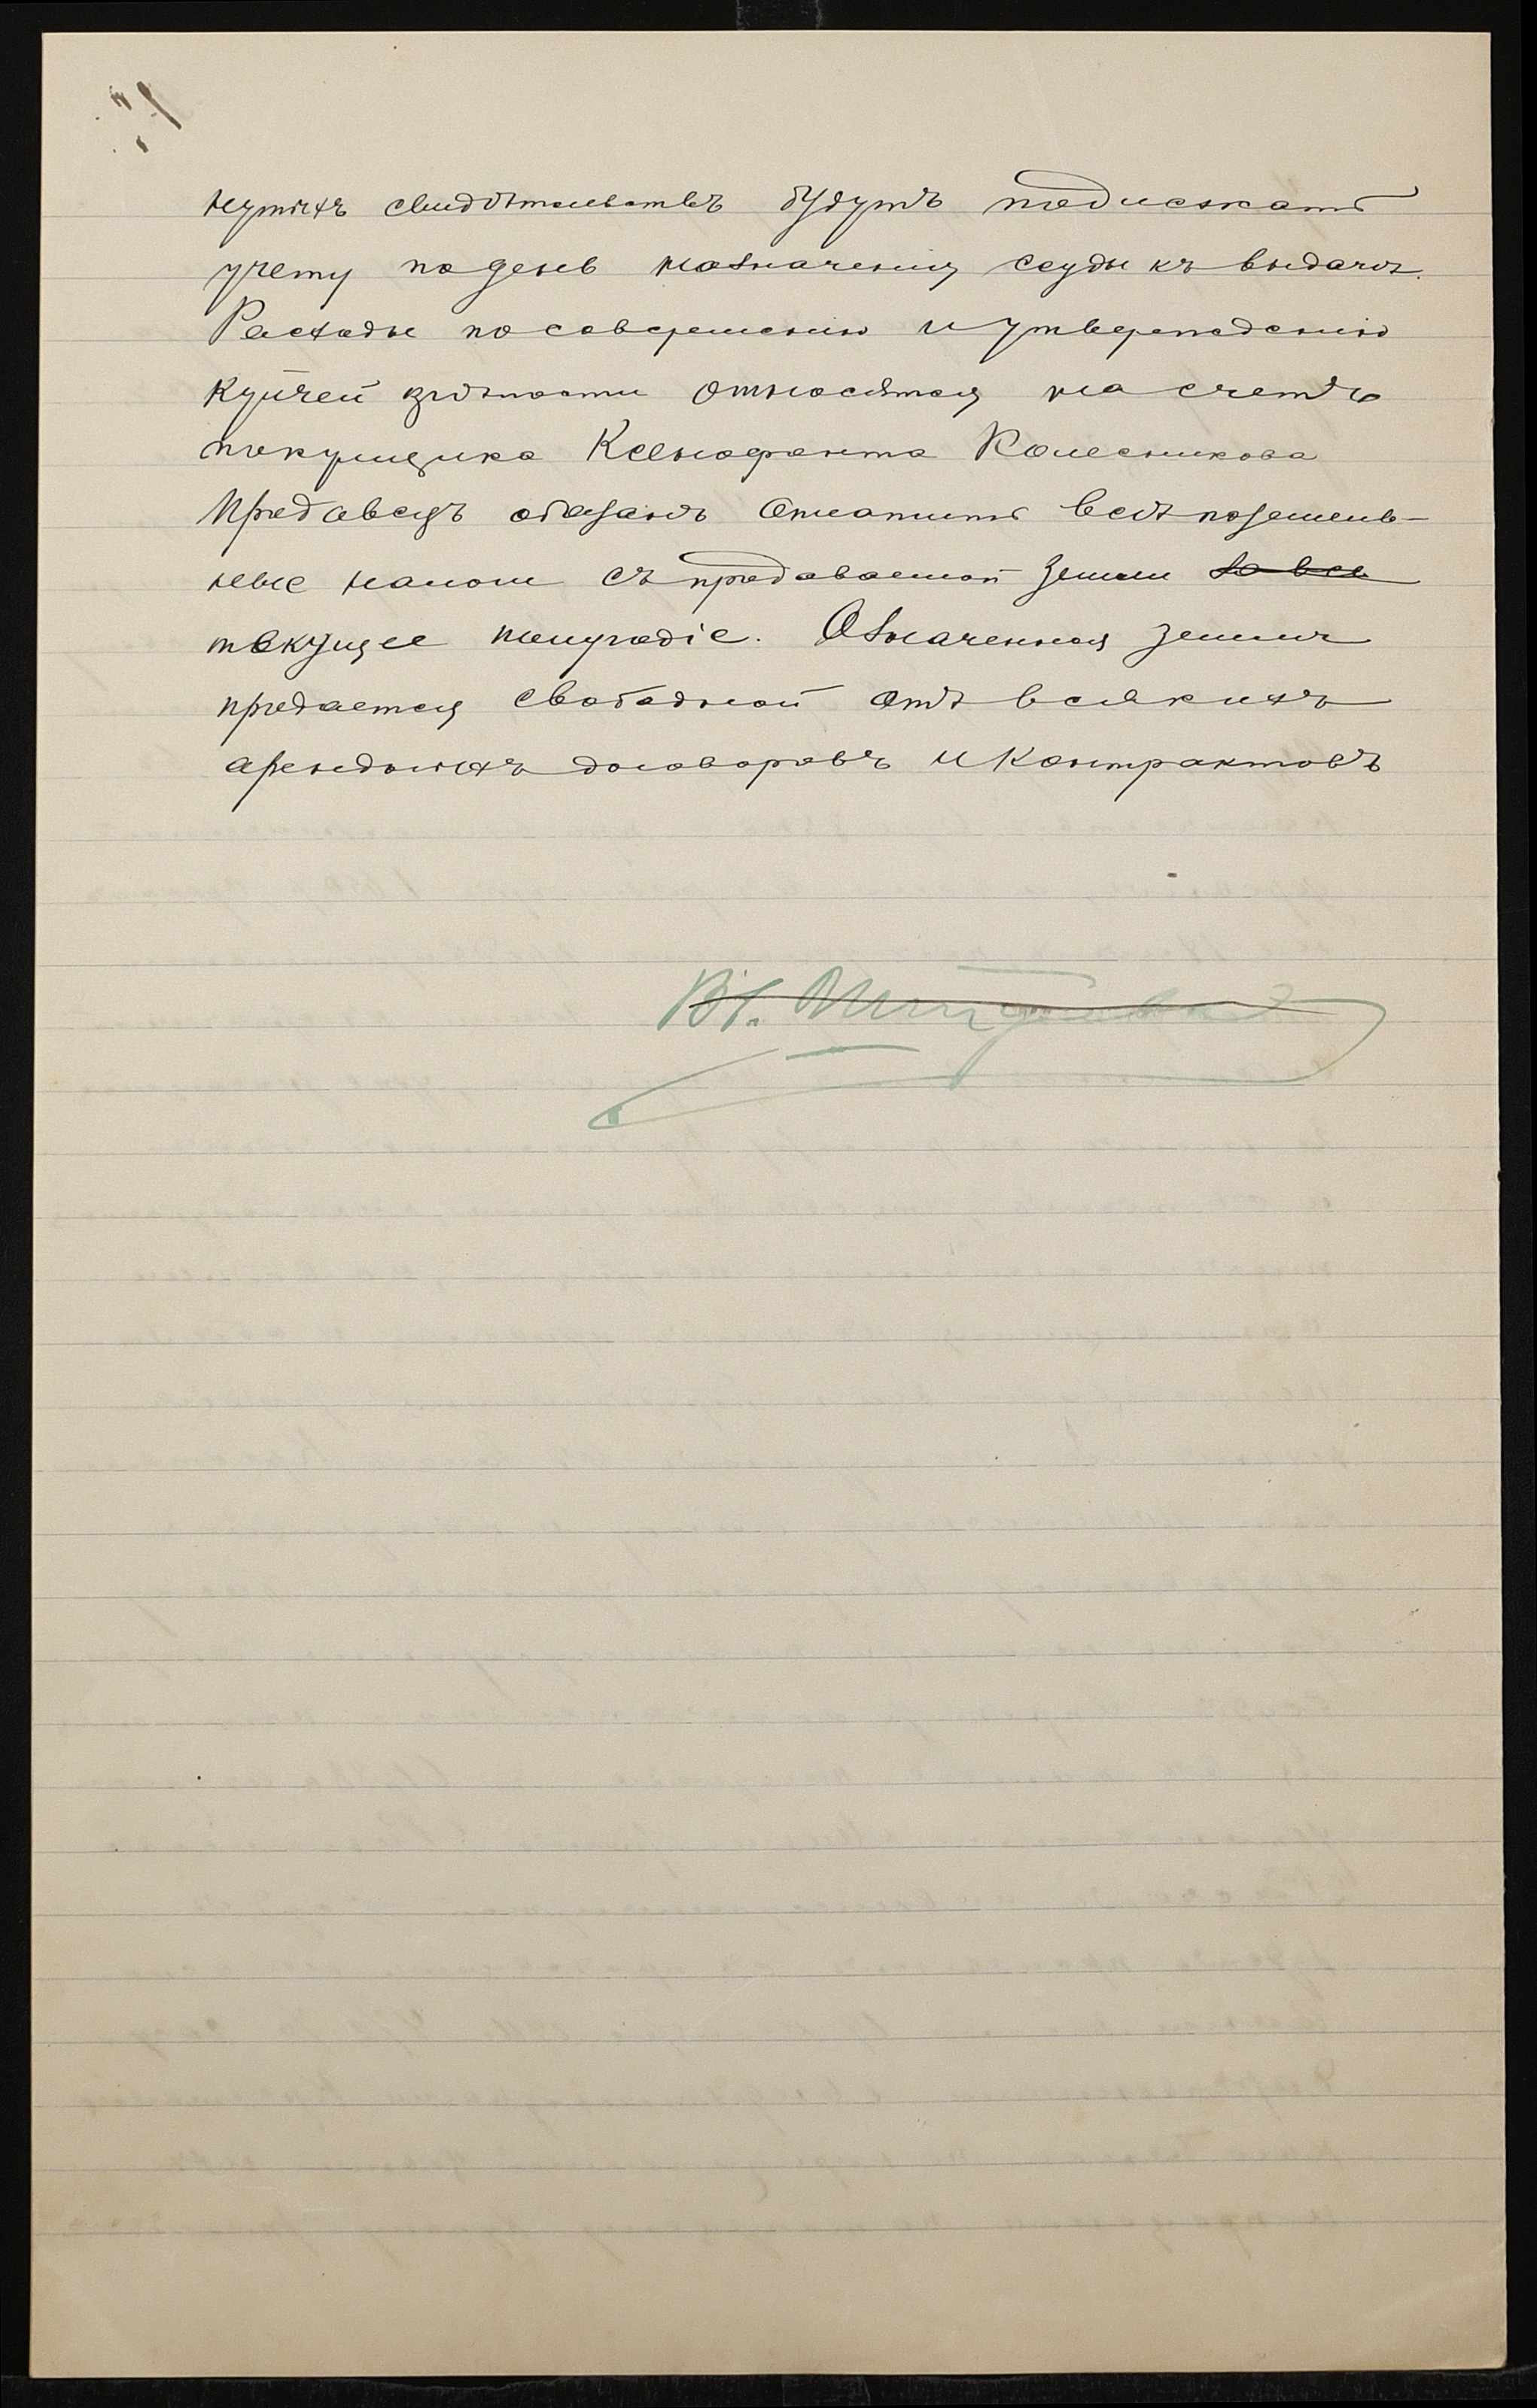 нутыхъ свидѣтельствъ будутъ подлежать
учету по день назначенія ссуды къ выдачѣ.
Расходы по совершенію и утвержденію
купчей крѣпости относятся на счетъ
покупщика Ксенофонта Колесникова
Продавецъ обязанъ оплатить всѣ поземель-
ные налоги съ продаваемой земли за все
текущее полугодіе. Означенная земля
продается свободной отъ всякихъ
арендныхъ договоровъ и контрактовъ
Вл.